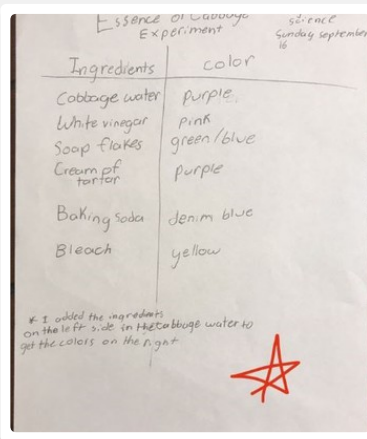 Essence of Cabbage
Experiment
science
Sunday september
16
Ingredients color
Cabbage water purple.
White vinegar pink
Soap flakes green/blue
Cream of
tartar purple
Baking soda denim blue
Bleach yellow
* I added the ingredients
on the left side in the cabbage water to
get the colors on the right